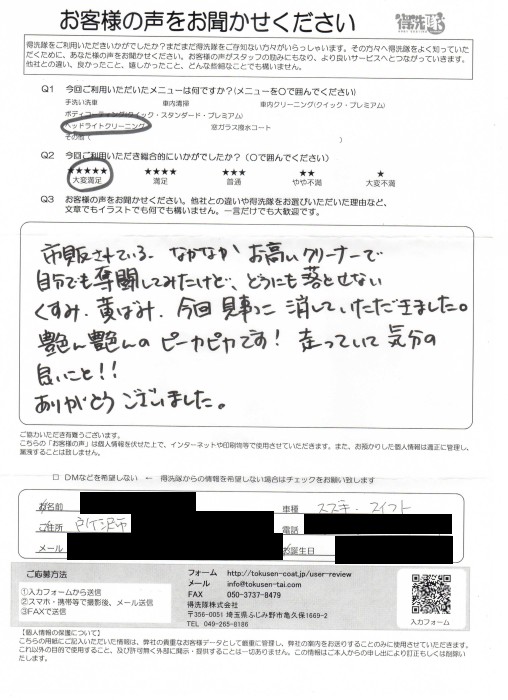 お客様の声をお聞かせください
得洗隊
得洗隊をご利用いただきいかがでしたか？まだまだ得洗隊をご存知ない方々がいらっしゃいます。その方々へ得洗隊をよく知っていた
だくために、あなた様の声をお聞かせください。お客様の声がスタッフの励みにもなり、より良いサービスへとつながっていきます。
他社との違い、良かったこと、嬉しかったこと、どんな些細なことでも構いません。
Q1 今回ご利用いただいたメニューは何ですか？(メニューを○で囲んでください)
手洗い洗車 車内清掃 車内クリーニング(クイック・プレミアム)
ボディコーティング(クイック・スタンダード・プレミアム)
ヘッドライトクリーニング 窓ガラス撥水コート
その他( )
Q2 今回ご利用いただき総合的にいかがでしたか？(○で囲んでください)
★★★★★ ★★★★ ★★★ ★★ ★
大変満足 満足 普通 やや不満 大変不満
Q3 お客様の声をお聞かせください。他社との違いや得洗隊をお選びいただいた理由など、
文章でもイラストでも何でも構いません。一言だけでも大歓迎です。
市販されている、なかなかお高いクリーナーで
自分でも奮闘してみたけど、どうにも落とせない
くすみ、黄ばみ、今回見事に消していただきました。
艶ん艶んのピーカピカです！走っていて気分の
良いこと！！
ありがとうございました。
ご協力いただき有難うございます。
こちらの「お客様の声」は個人情報を伏せた上で、インターネットや印刷物等で使用させていただきます。また、お預かりした個人情報は適正に管理し、
漏洩することは致しません。
□ DMなどを希望しない ← 得洗隊からの情報を希望しない場合はチェックをお願い致します
お名前 車種 スズキ・スイフト
ご住所 所沢市 電話
メール お誕生日
ご応募方法
①入力フォームから送信
②スマホ・携帯等で撮影後、メール送信
③FAXで送信
フォーム http://tokusen-coat.jp/user-review
メール info@tokusen-tai.com
FAX 050-3737-8479
得洗隊株式会社
〒356-0051 埼玉県ふじみ野市亀久保1669-2
TEL 049-265-8186
入力フォーム
【個人情報の保護について】
こちらの用紙にご記入いただいた情報は、弊社の貴重なお客様データとして厳重に管理し、弊社の案内をお送りすることのみに使用させていただきます。
これ以外の目的で使用すること、及び許可無く外部に開示・提供することは一切ありません。この情報はご本人からの申し出により訂正もしくは削除い
たします。